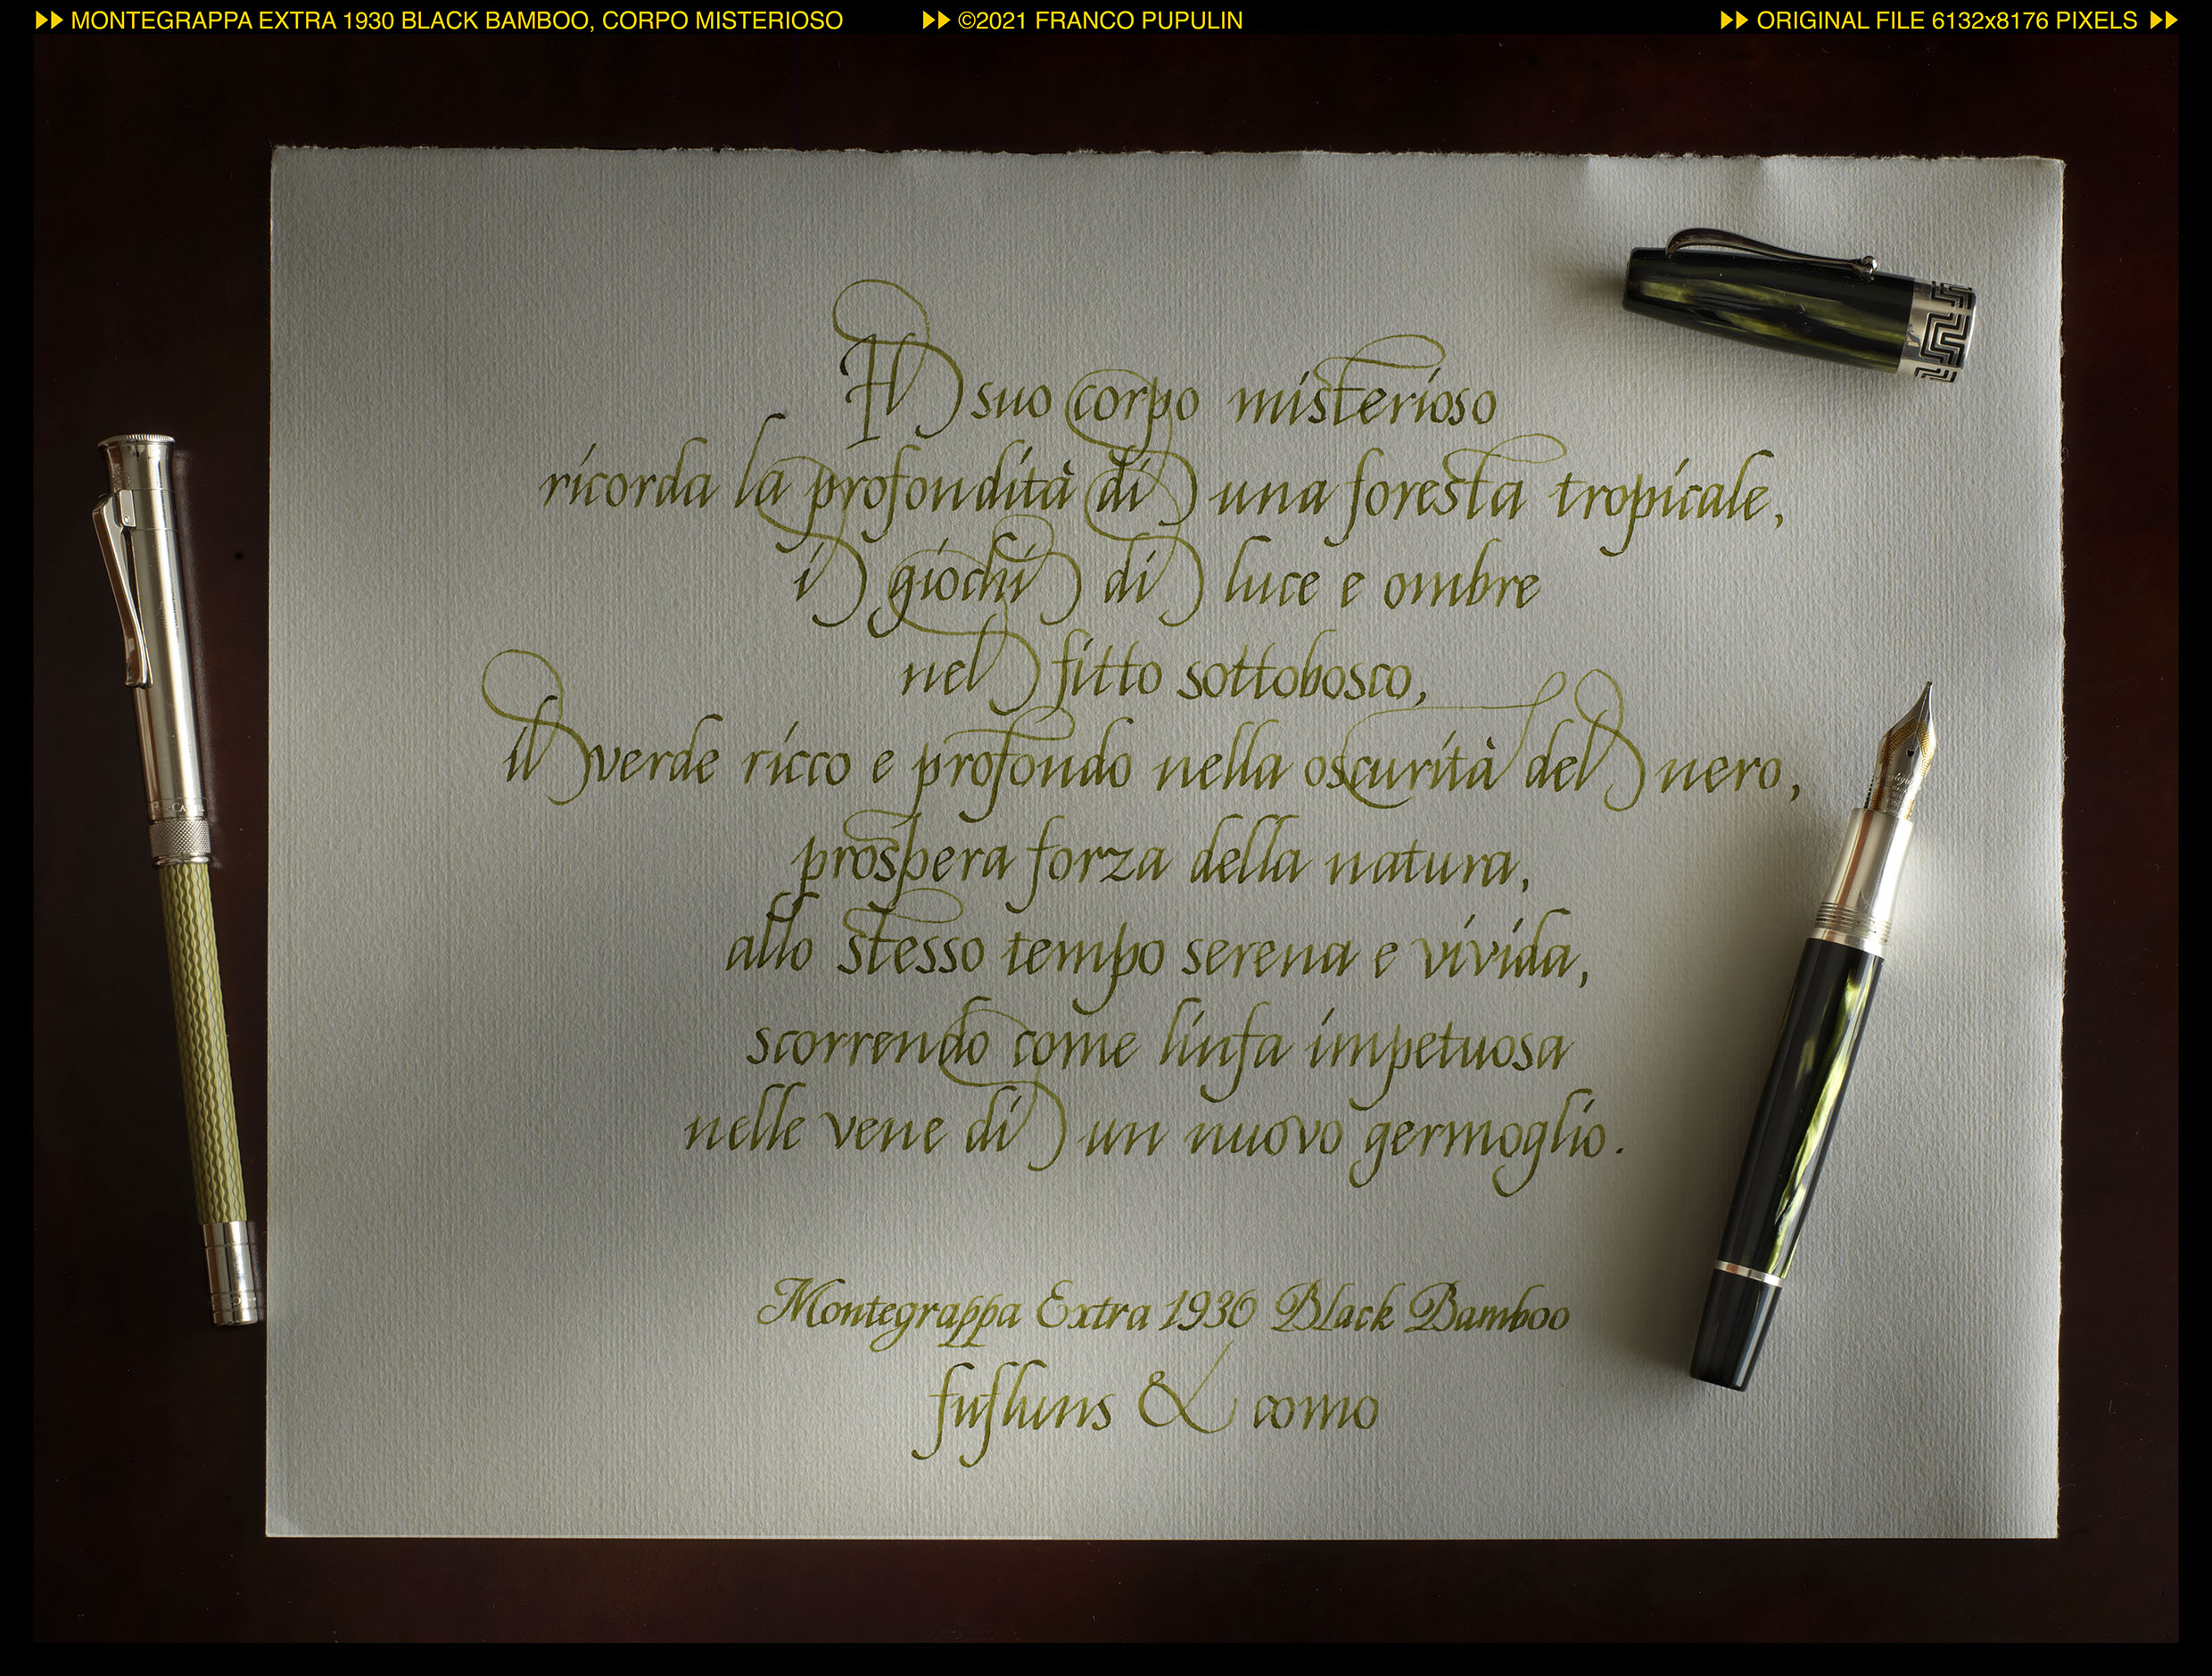 MONTEGRAPPA EXTRA 1930 BLACK BAMBOO, CORPO MISTERIOSO ©2021 FRANCO PUPULIN ORIGINAL FILE 6132x8176 PIXELS
Il suo corpo misterioso
ricorda la profondità di una foresta tropicale,
i giochi di luce e ombre
nel fitto sottobosco,
il verde ricco e profondo nella oscurità del nero,
prospera forza della natura,
allo stesso tempo serena e vivida,
scorrendo come linfa impetuosa
nelle vene di un nuovo germoglio.
Montegrappa Extra 1930 Black Bamboo
fufluns & como